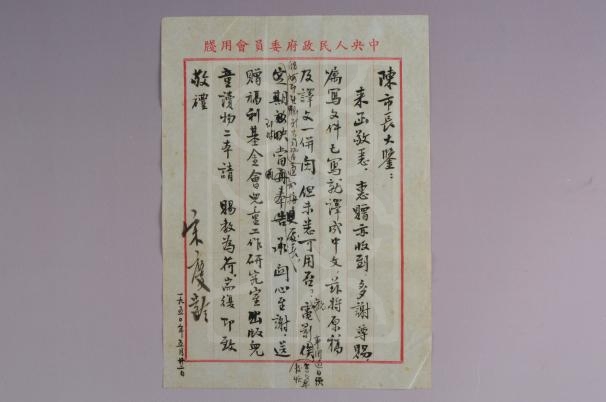 中央人民政府委員會用牋
陳市長大鑒：
来函敬悉，惠贈亦收到，多謝尊賜。
属寫文件已寫就，譯成中文，茲將原稿
及譯文一併附，但未悉可用否，電影俟
定期放映當再奉告，承關心至謝。送
贈福利基金會兒童工作研究室出版兒
童讀物二本請 賜教為荷。耑復 即致
敬禮
宋慶齡
一九五〇年五月廿二日